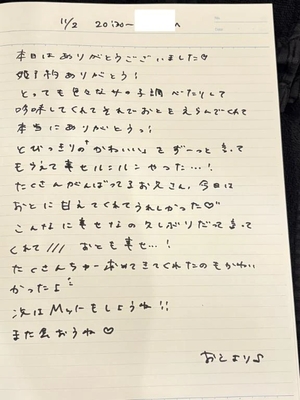 11/2 20:30〜
本日はありがとうございました♡
姫予約ありがとう!
とっても色々な女の子調べたりして
吟味してくれてそれでおとをえらんでくれて
本当にありがとうっ!
とびっきりの「かわいい」をずーっと言って
もらえて幸せルンルンやった…!
たくさんがんばってるお兄さん、今日は
おとに甘えてくれてうれしかった♡
こんなに幸せなの久しぶりだって言って
くれて/// おとも幸せ…!
たくさんちゅー求めてきてくれたのもかわい
かったよ
次はMyにもしようね!!
また会おうね♡
おとより♪